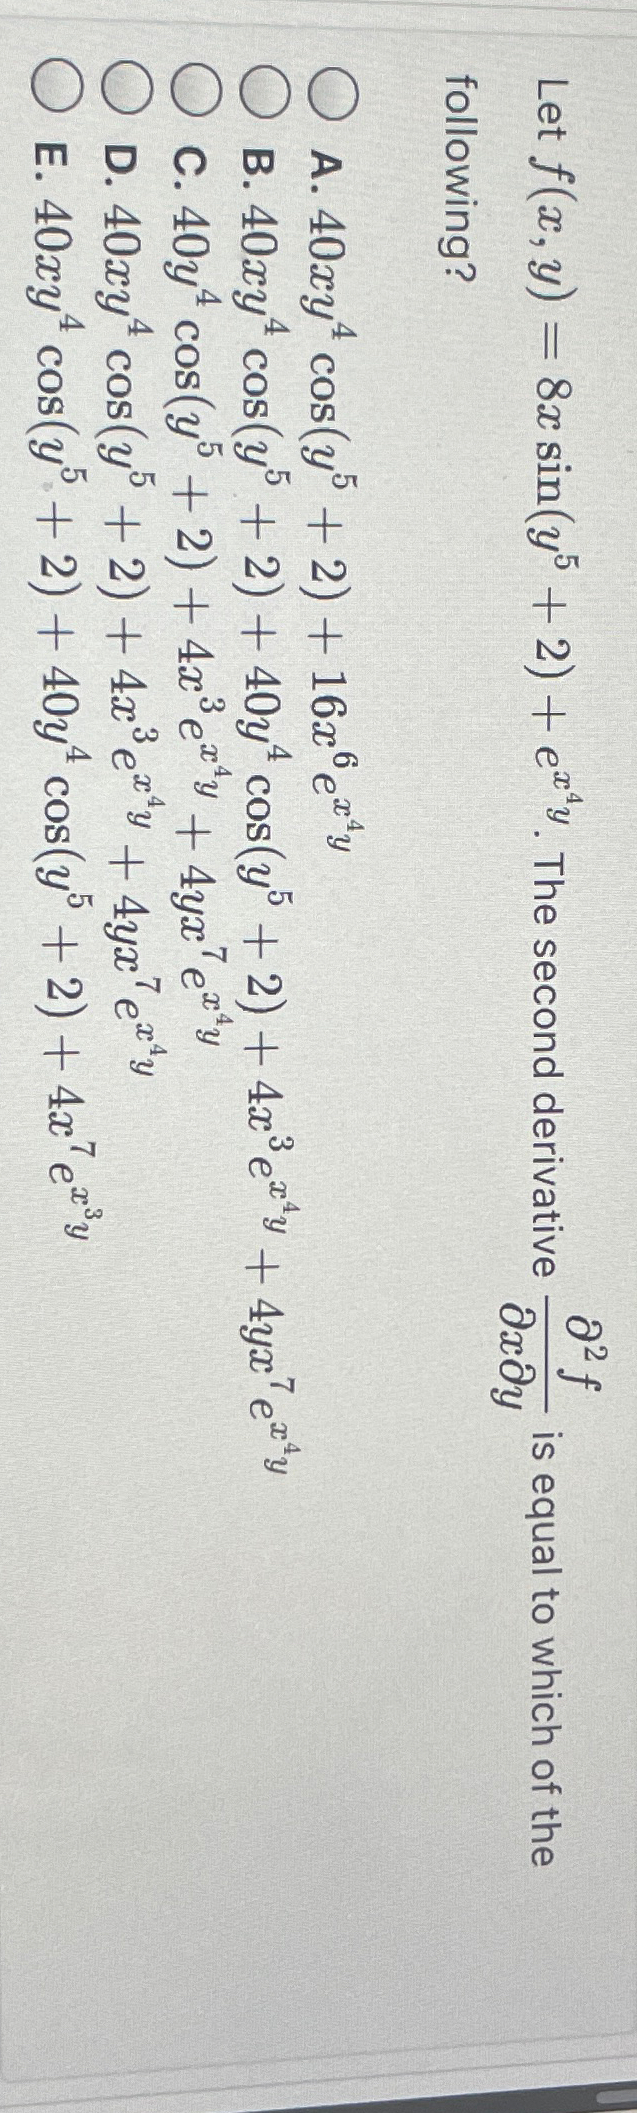 Let f(x, y) = 8x sin(y⁵ + 2) + e^{x⁴y}. The second derivative ∂²f/∂x∂y is equal to which of the
following?
A. 40xy⁴ cos(y⁵ + 2) + 16x⁶e^{x⁴y}
B. 40xy⁴ cos(y⁵ + 2) + 40y⁴ cos(y⁵ + 2) + 4x³e^{x⁴y} + 4yx⁷e^{x⁴y}
C. 40y⁴ cos(y⁵ + 2) + 4x³e^{x⁴y} + 4yx⁷e^{x⁴y}
D. 40xy⁴ cos(y⁵ + 2) + 4x³e^{x⁴y} + 4yx⁷e^{x⁴y}
E. 40xy⁴ cos(y⁵ + 2) + 40y⁴ cos(y⁵ + 2) + 4x⁷e^{x³y}